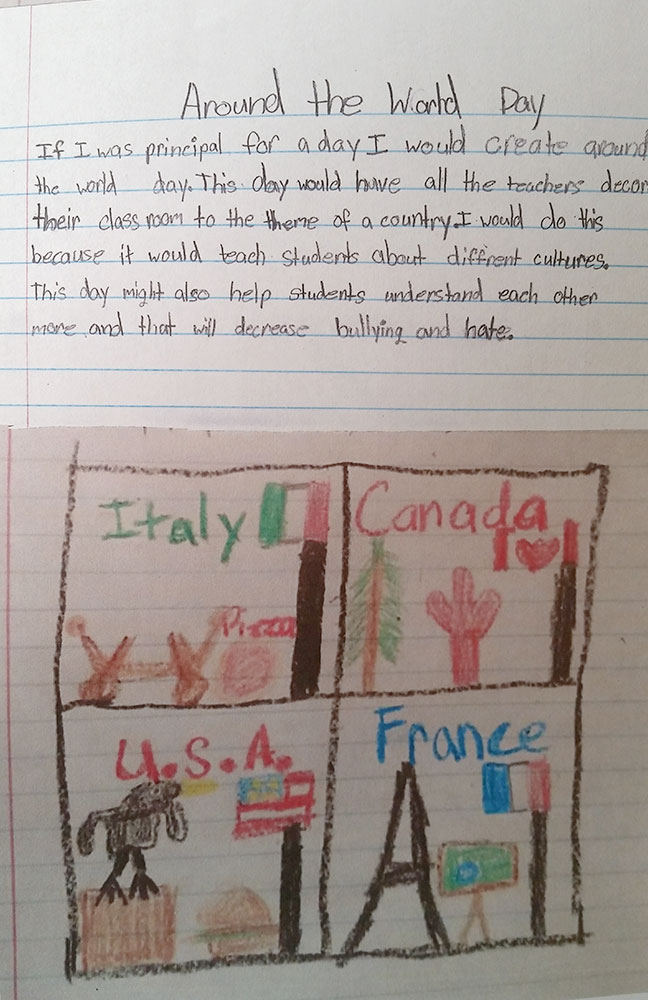 Around the World Day
If I was principal for a day I would create around
the world day. This day would have all the teachers decor
their class room to the theme of a country. I would do this
because it would teach students about diffrent cultures.
This day might also help students understand each other
more and that will decrease bullying and hate.
Italy
Canada
Pizza
U.S.A.
France